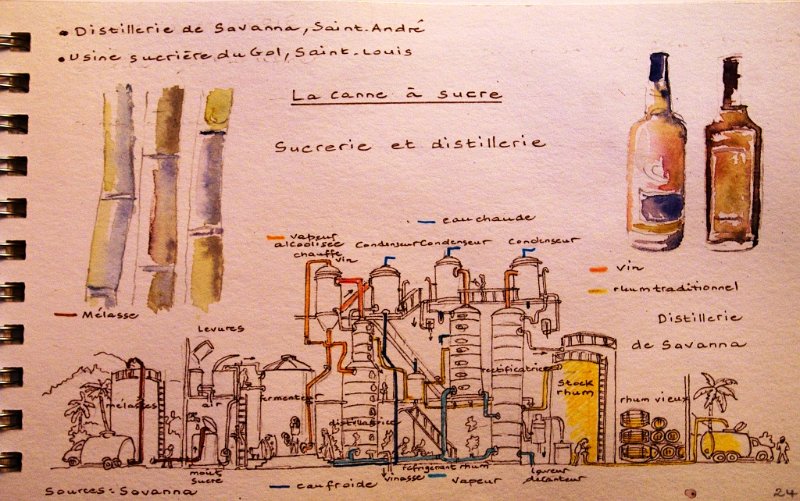 • Distillerie de Savanna, Saint-André
• Usine sucrière du Gol, Saint-Louis
La canne à sucre
Sucrerie et distillerie
eau chaude
vapeur
alcoolisée
chauffe
vin
Condenseur
Condenseur
Condenseur
vin
rhum traditionnel
Mélasse
Levures
Distillerie
de Savanna
mélasses
air
fermenteur
distillatrice
rectificatrice
stock
rhum
rhum vieux
moût
sucré
vinasse
réfrigérant rhum
laveur
décanteur
eau froide
vapeur
Sources: Savanna
24